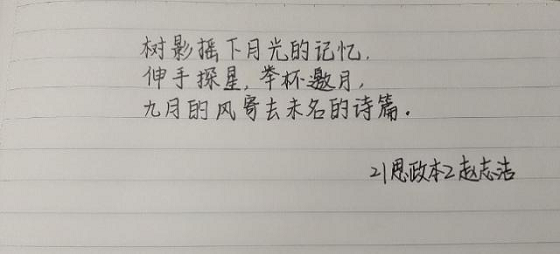 树影摇下月光的记忆,
伸手探星,举杯邀月,
九月的风寄去未名的诗篇.
21思政本2赵志洁